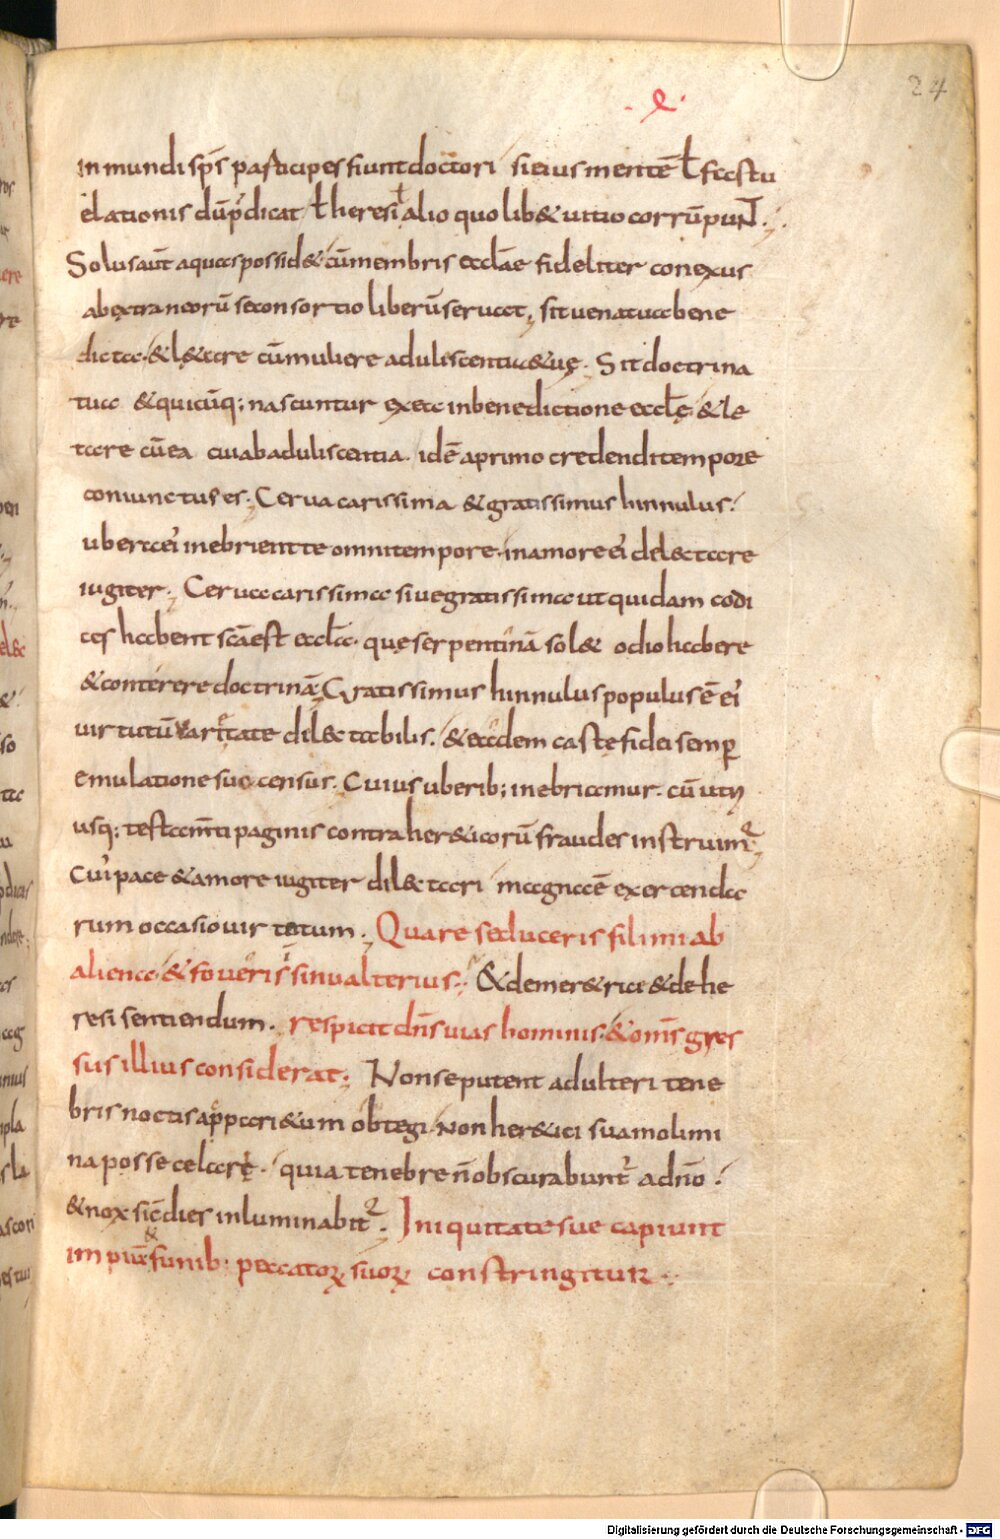 24
inmundi sp̄s participes fiunt doctori si eius mentē ł fastu
elationis dū p̄dicat ł heresi ł alio quolib& uitio corrūpunt.
Solus aūt aquas possid& cū membris ecclae fideliter conexus
ab extraneorū se consortio liberū seruat, sit uena tua bene
dicta. & l&are cū muliere aduliscentiae tuae. Sit doctrina
tua & quicūq; nascuntur ex ea in benedictione eccłę & lę
tare cū ea cui ab aduliscentia. idē a primo credendi tempore
coniunctus es. Cerua carissima & gratissimus hinnulus.
ubera ei inebrient te omni tempore. in amore ei del&tare
iugiter. Cerua carissima siue gratissima ut quidam codi
ces habent scā est eccła. quę serpentinā sol& odio habere
& conterere doctrinā. Gratissimus hinnulus populus ē ei
uirtutū uarietate dil&tabilis. & eadem castę fidei semp
emulatione succensus. Cuius uberib; inebriamur. cū utri
usq; testam̄ti paginis contra her&icorū fraudes instruim
Cui pace & amore iugiter dil&tari magna ē exercenda
rum occasio uirtutum. Quare seduceris fili mi ab
aliena. & foueris sinu alterius. & de mer&rice & de he
resi sentiendum. respicit dn̄s uias hominis. & om̄s gres
sus illius considerat; Non se putent adulteri tene
bris noctis ap pari&um obtegi. Non her&ici sua molimi
na posse celare. quia tenebre n̄ obscurabunt ad n̄o.
& nox sic dies inluminabit. Iniquitate sue capiunt
impiū & funib; peccatorꝝ suorꝝ constringitur.
Digitalisierung gefördert durch die Deutsche Forschungsgemeinschaft - DFG